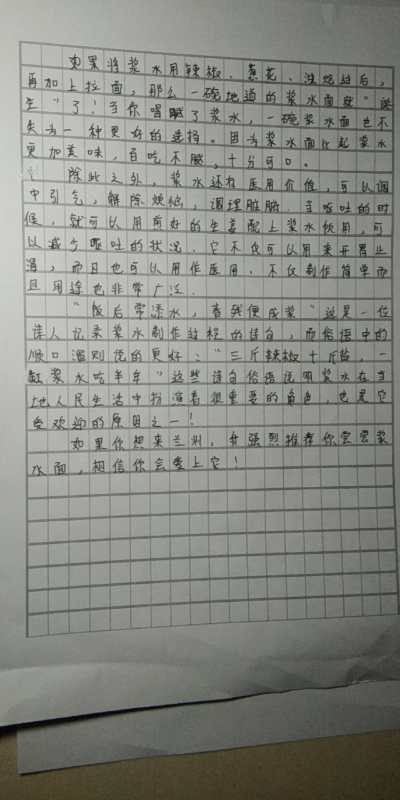 如果将浆水用辣椒、葱花、浇炝过后，
再加上拉面，那么一碗地道的浆水面就"诞
生"了！当你喝腻了浆水，一碗浆水面也不
失为一种更好的选择。因为浆水面比起浆水
更加美味，百吃不腻，十分可口。
除此之外，浆水还有医用价值，可以调
中引气，解除烦恼，调理脏腑。当呕吐的时
候，就可以用煎好的生姜配上浆水饮用，可
以减少呕吐的状况。它不仅可以用来开胃止
渴，而且也可以用作医用，不仅制作简单而
且用途也非常广泛。
"饭后常添水，春残便成浆"这是一位
诗人记录浆水制作过程的诗句，而俗语中的
顺口溜则说的更好："三斤辣椒十斤盐，一
缸浆水吃半年"这些诗句俗语说明浆水在当
地人民生活中扮演着很重要的角色，也是它
受欢迎的原因之一！
如果你想来兰州，我强烈推荐你尝尝浆
水面，相信你会爱上它！